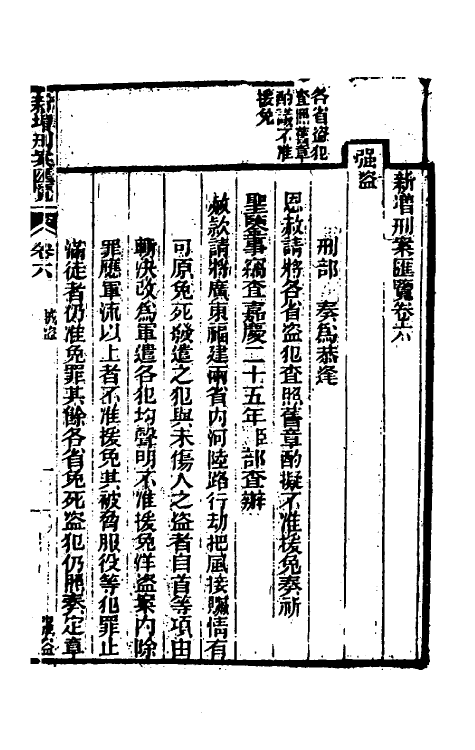 新增刑案匯覽卷六
强盜
各省盜犯
查照舊章
酌議不准
援免
刑部 奏為恭逢
恩赦請將各省盜犯查照舊章酌擬不准援免奏祈
聖鑒事竊查嘉慶二十五年 部查辦
赦款請將廣東福建兩省內河陸路行劫把風接贓情有
可原免死發遣之犯與未傷人之盜者自首等項由
斬決改為軍遣各犯均聲明不准援免洋盜案內除
罪應軍流以上者不准援免其被脅服役等犯罪止
滿徒者仍准免罪其餘各省免死盜犯仍照奏定章
新增刑案匯覽
卷六
强盜
一